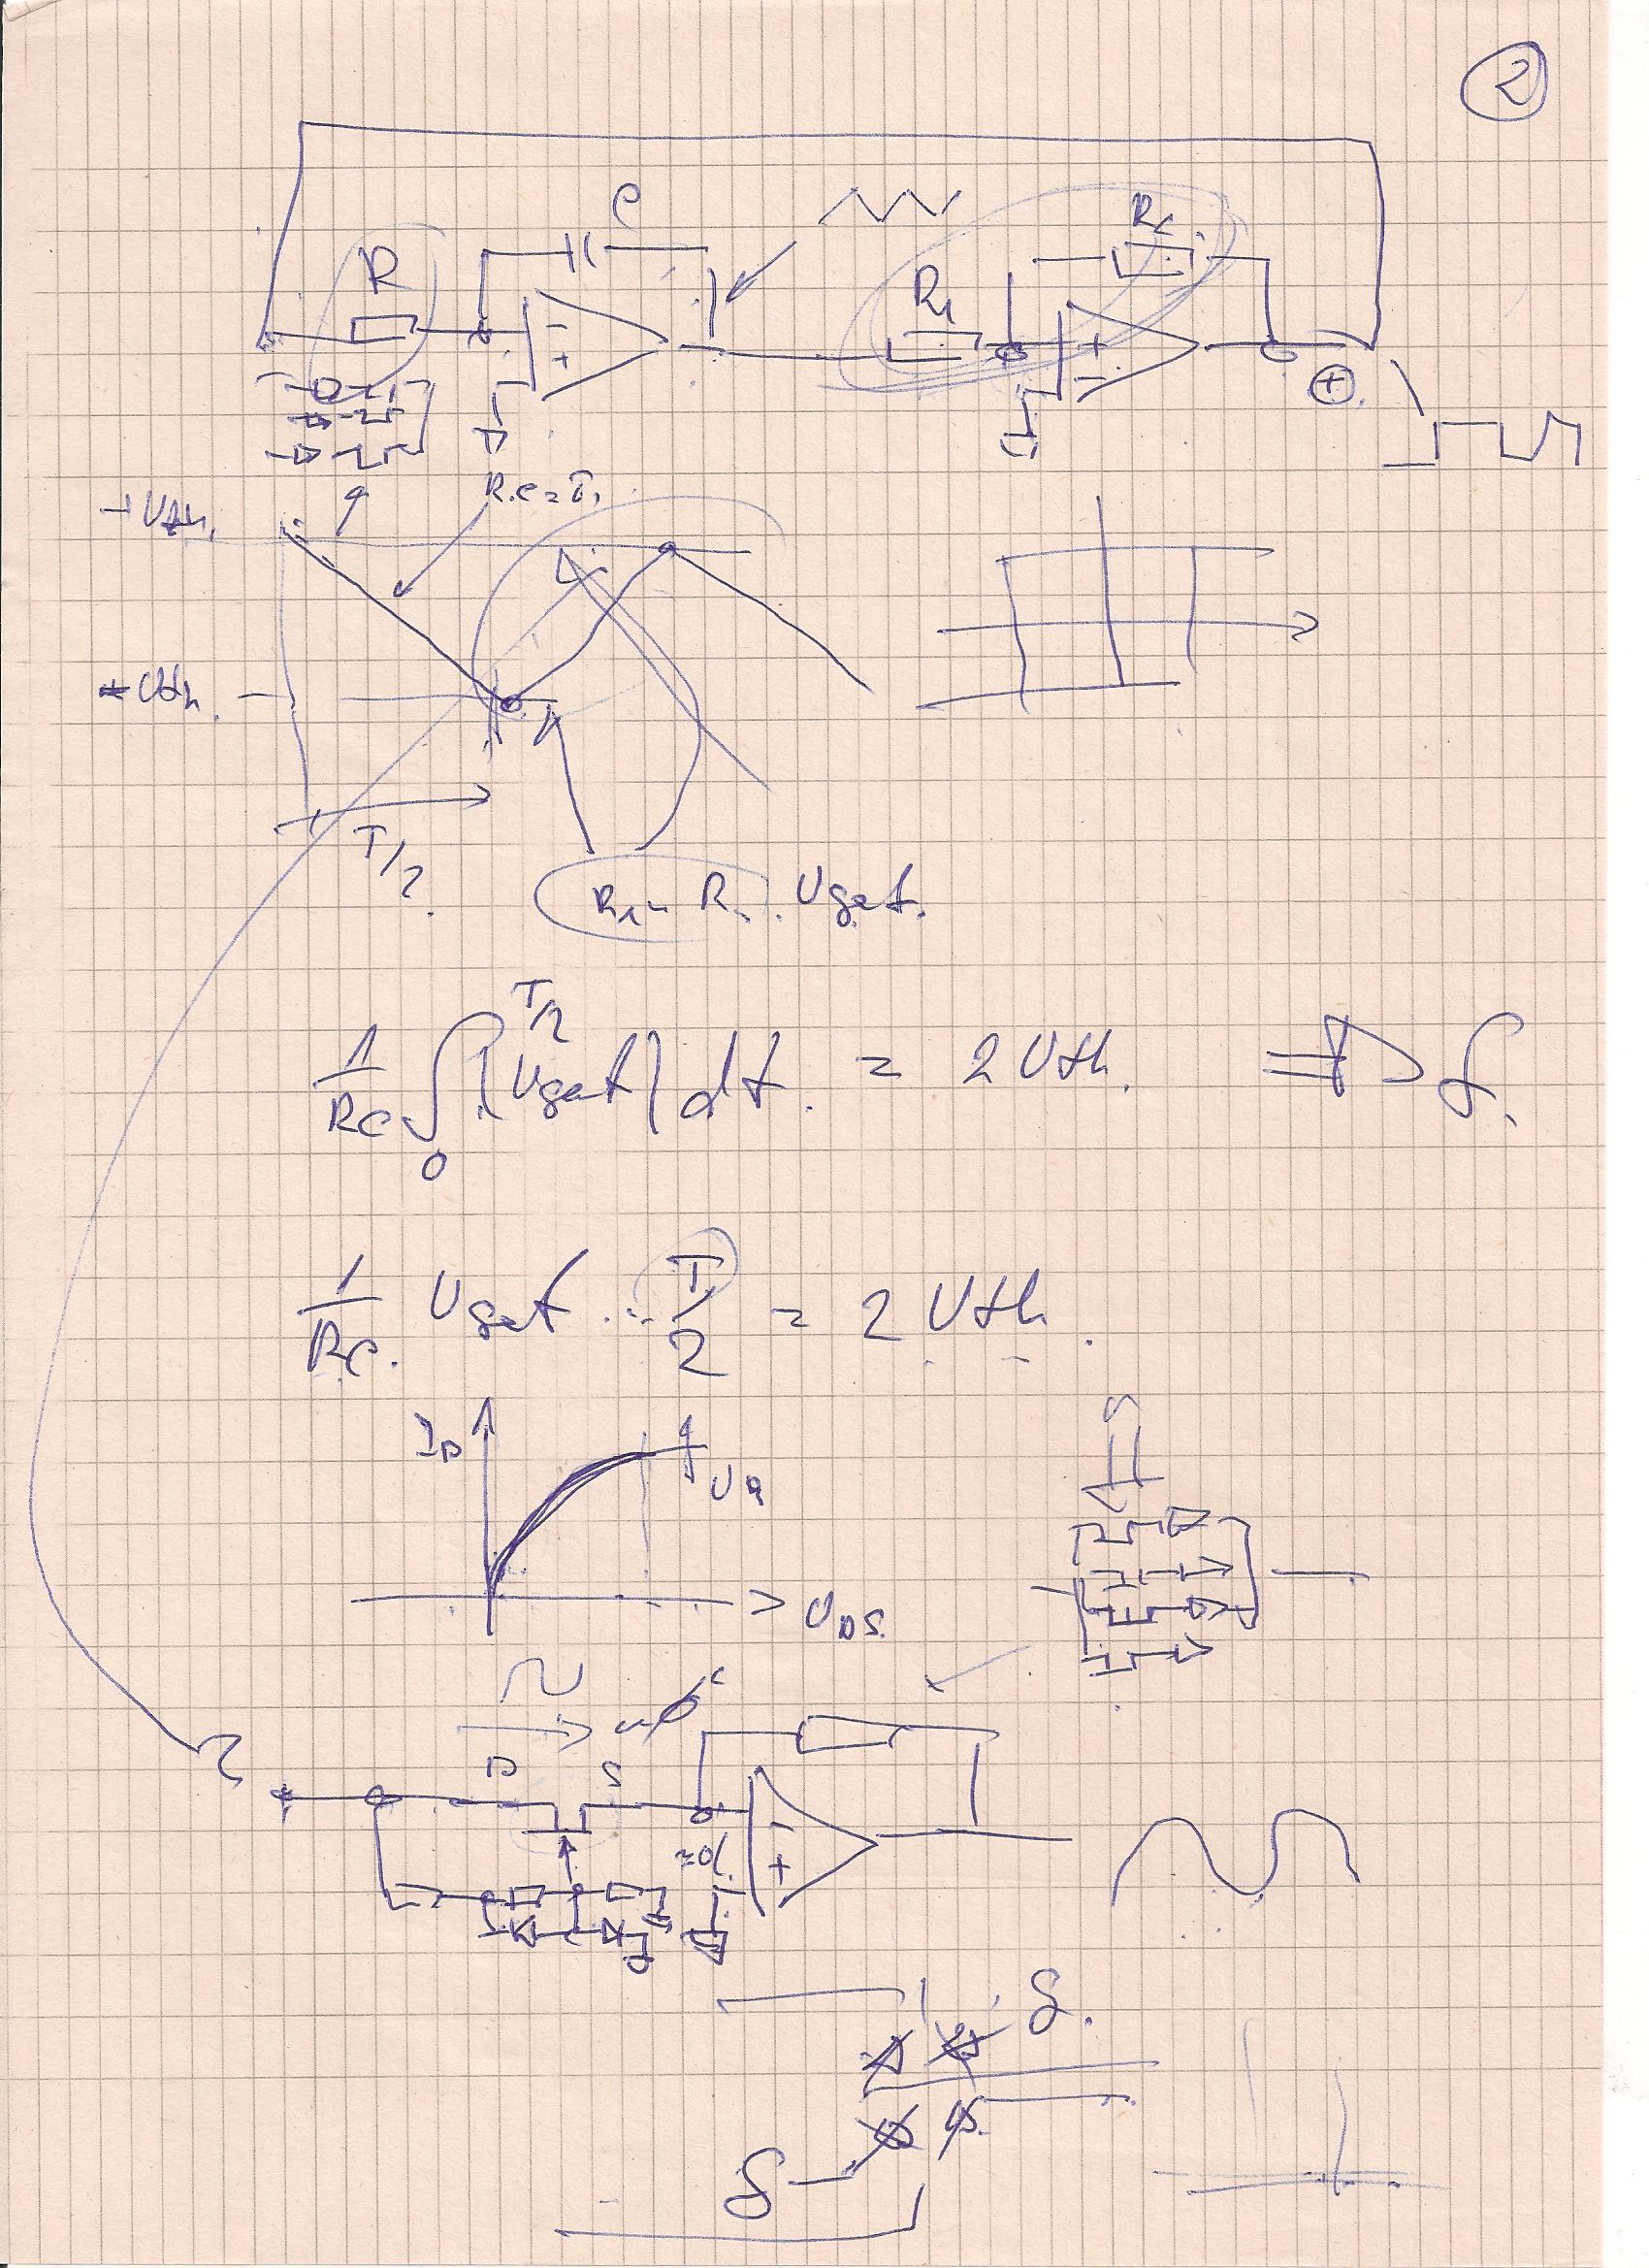 2
C
R
R1
+
-
+
-
+
R.C = T1
+Uth.
Uth.
T/2.
Usat.
1/RC ∫ 0 T/2 (Usat) dt. = 2 Uth. ⇒ f.
1/RC. Usat . T/2 = 2 Uth.
ID
UDS.
D S
-
+